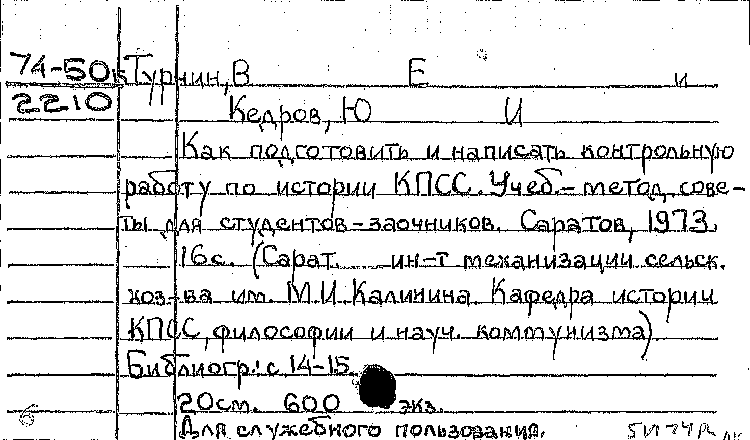 74-50к Турчин, В Е и
2210 Кедров, Ю И
Как подготовить и написать контрольную
работу по истории КПСС. Учеб.-метод, сове-
ты для студентов-заочников. Саратов, 1973.
16с. (Сарат. ин-т механизации сельск.
хоз-ва им. М.И. Калинина. Кафедра истории
КПСС, философии и науч. коммунизма).
Библиогр.: с. 14-15.
20см. 600 экз.
Для служебного пользования.
6